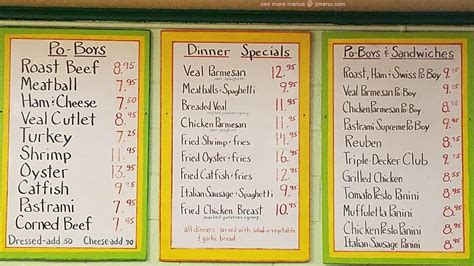 see more menus @ zmenu.com
Po-Boys
Roast Beef 8.95
Meatball 7.95
Ham & Cheese 7.50
Veal Cutlet 8.95
Turkey
Shrimp 11.95
Oyster 13.95
Catfish 9.95
Pastrami 7.95
Corned Beef 7.95
Dressed-add 50 Cheese-add 70
Dinner Specials
Veal Parmesan 12.95
Meatballs & Spaghetti 9.95
Breaded Veal 11.95
mashed potatoes & gravy
Chicken Parmesan 11.95
Fried Shrimp & fries
Fried Oyster & fries
Fried Catfish & fries 12.95
Italian Sausage & Spaghetti 9.95
Fried Chicken Breast 10.95
mashed potatoes & gravy
all dinners served with salad or vegetable
& garlic bread
Po-Boys & Sandwiches
Roast, Ham & Swiss Po Boy
Veal Parmesan Po Boy
Chicken Parmesan Po Boy
Pastrami Supreme Po Boy
Reuben
Triple Decker Club
Grilled Chicken
Tomato Pesto Panini
Muffuletta Panini
Italian Sausage Panini